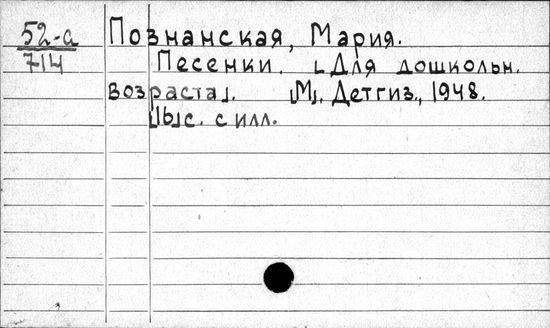 52-а
714
Познанская, Мария.
Песенки. [Для дошкольн.
возраста]. [М]. Детгиз., 1948.
[16]с. с илл.